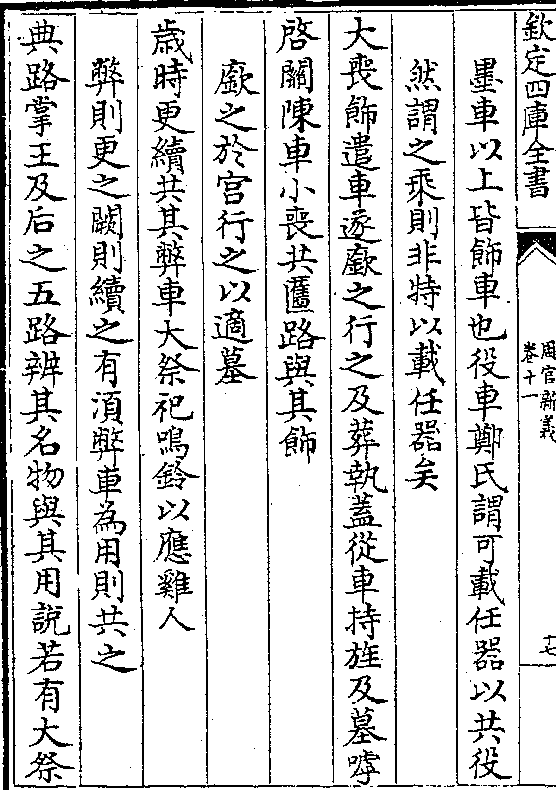 欽定四庫全書
周官新義
卷十一
十七
墨車以上皆飾車也役車鄭氏謂可載任器以共役
然謂之乘則非特以載任器矣
大喪飾遣車遂廞之行之及葬執蓋從車持旌及墓嘑
啓關陳車小喪共匶路與其飾
廞之於宮行之以適墓
歲時更續共其弊車大祭祀鳴鈴以應雞人
弊則更之闕則續之有湏弊車為用則共之
典路掌王及后之五路辨其名物與其用說若有大祭